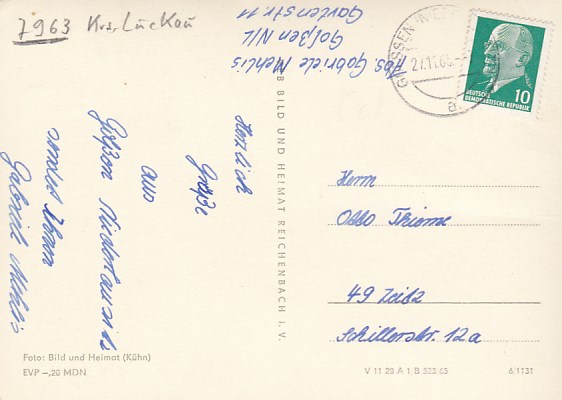 7963 Krs. Luckau
Abs. Gabriele Mehlis
Golßen N/L
Gartenstr. 11
GOLSSEN
27.11.65
DEUTSCHE
DEMOKRATISCHE REPUBLIK
10
Herzlich
Grüße
aus
Golßen Niederlausitz
sendet Ihnen
Gabriele Mehlis
BILD UND HEIMAT REICHENBACH I. V.
Herrn
Otto Thieme
49 Zeitz
Schillerstr. 12a
Foto: Bild und Heimat (Kühn)
EVP –,20 MDN
V 11 28 A 1 B 523 65
6/1131